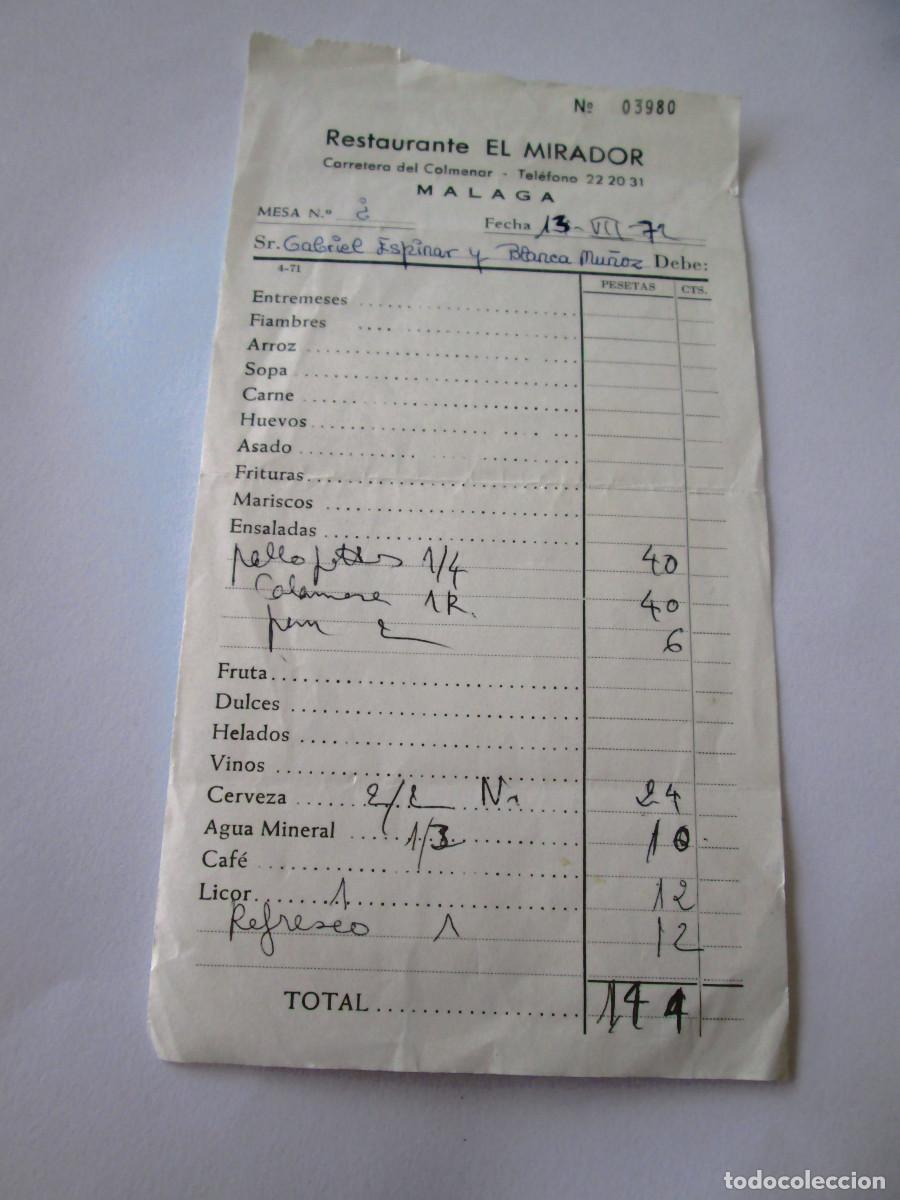 Nº 03980
Restaurante EL MIRADOR
Carretera del Colmenar - Teléfono 22 20 31
MALAGA
MESA N.º Fecha 13-VII-72
Sr. Gabriel Espinar y Blanca Muñoz Debe:
4-71 PESETAS CTS.
Entremeses
Fiambres
Arroz
Sopa
Carne
Huevos
Asado
Frituras
Mariscos
Ensaladas
1/4 40
Calamare 1R. 40
2 6
Fruta
Dulces
Helados
Vinos
Cerveza 2/2 24
Agua Mineral 1/3 10
Café
Licor 1 12
Refresco 1 12
TOTAL 144
todocoleccion
todocoleccion.net